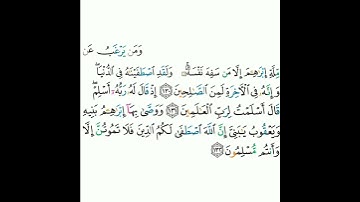 وَمَن يَرْغَبُ عَن
مِّلَّةِ إِبْرَٰهِـۧمَ إِلَّا مَن سَفِهَ نَفْسَهُۥ ۚ وَلَقَدِ ٱصْطَفَيْنَٰهُ فِى ٱلدُّنْيَا ۖ
وَإِنَّهُۥ فِى ٱلْءَاخِرَةِ لَمِنَ ٱلصَّٰلِحِينَ ١٣٠ إِذْ قَالَ لَهُۥ رَبُّهُۥٓ أَسْلِمْ ۖ
قَالَ أَسْلَمْتُ لِرَبِّ ٱلْعَٰلَمِينَ ١٣١ وَوَصَّىٰ بِهَآ إِبْرَٰهِـۧمُ بَنِيهِ
وَيَعْقُوبُ يَٰبَنِىَّ إِنَّ ٱللَّهَ ٱصْطَفَىٰ لَكُمُ ٱلدِّينَ فَلَا تَمُوتُنَّ إِلَّا
وَأَنتُم مُّسْلِمُونَ ١٣٢